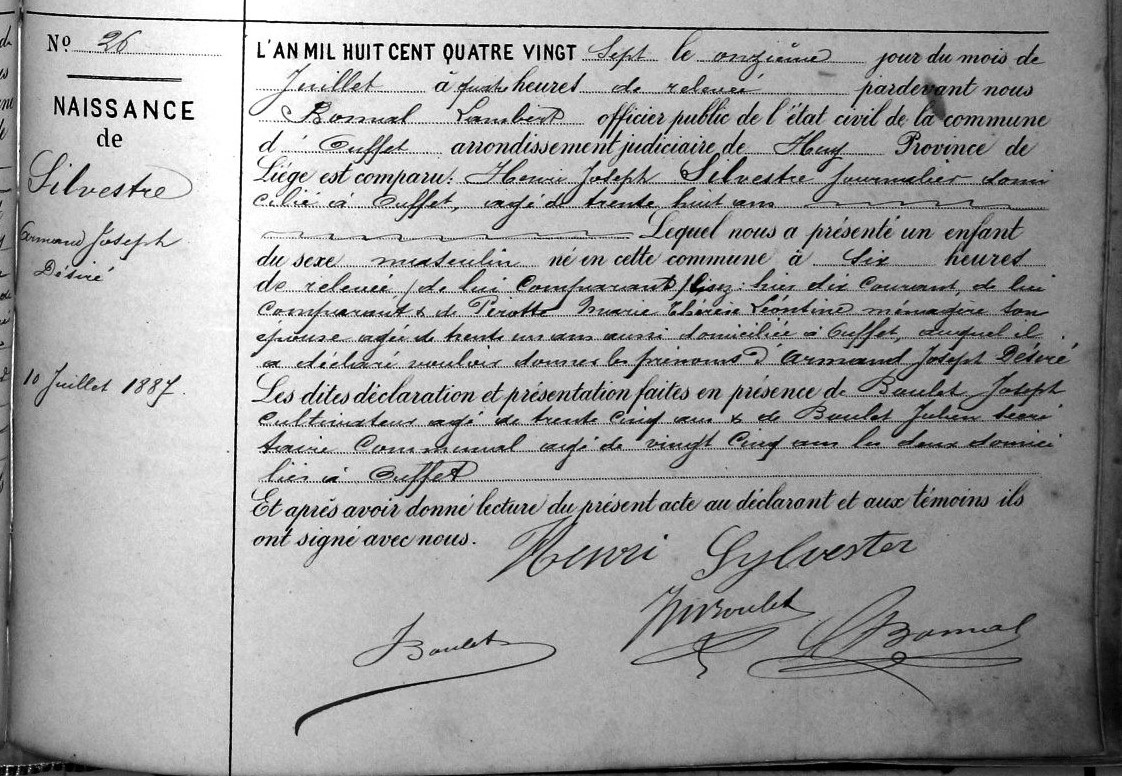 Nº 26
NAISSANCE
de
Silvestre
Armand Joseph
Désiré
10 Juillet 1887.
L'AN MIL HUIT CENT QUATRE VINGT Sept le onzième jour du mois de
Juillet à quatre heures de relevée pardevant nous
Bomal Lambert officier public de l'état civil de la commune
d' Ouffet arrondissement judiciaire de Huy Province de
Liége est comparu: Henri Joseph Silvestre journalier domi
cilié à Ouffet, agé de trente huit ans
Lequel nous a présenté un enfant
du sexe masculin né en cette commune à six heures
de relevée (de lui Comparant) lisez: hier dix courant, de lui
Comparant & de Pirotte Marie Thérèse Léontine ménagère son
épouse agée de trente un ans aussi domiciliée à Ouffet, auquel il
a déclaré vouloir donner les prénoms d' Armand Joseph Désiré
Les dites déclaration et présentation faites en présence de Boulet Joseph
Cultivateur agé de trente cinq ans & de Boulet Julien secré
taire Communal agé de vingt cinq ans les deux domici
liés à Ouffet
Et après avoir donné lecture du présent acte au déclarant et aux témoins ils
ont signé avec nous.
Henri Sylvester
Boulet
Boulet
Bomal